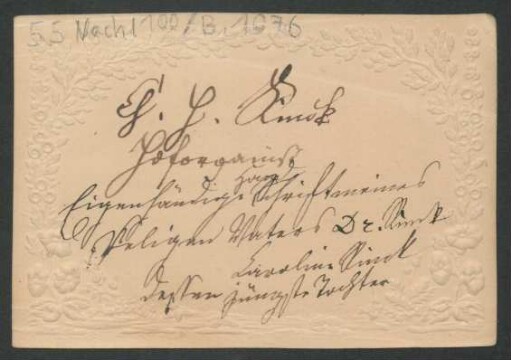 55 Nachl 100/B, 1076
Ch. H. Rinck
Hoforganist
Eigenhändige Schrift meines
Seligen Vaters Dr. Rinck
Caroline Rinck
dessen jüngste Tochter